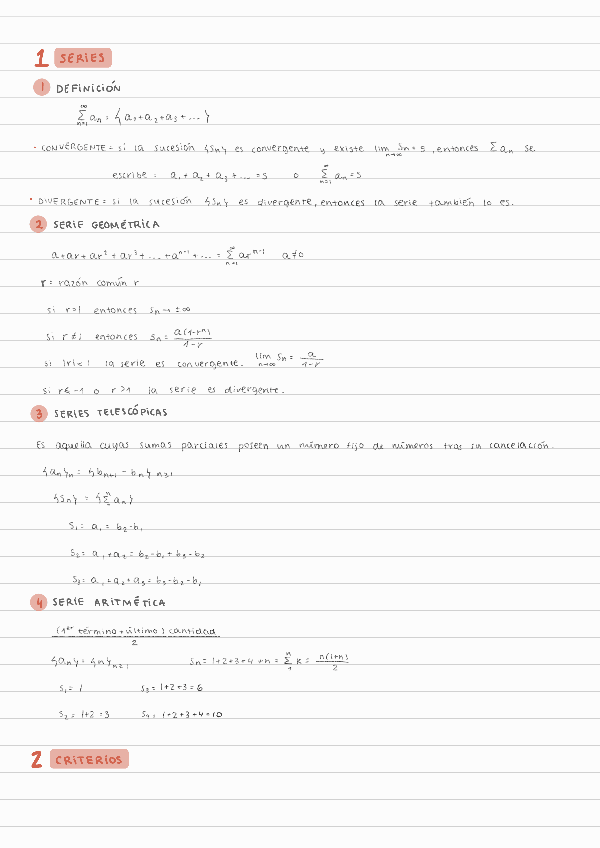 1 SERIES
1 DEFINICIÓN
∞ ∑ n=1 aₙ = {a₁+a₂+a₃+...}
· CONVERGENTE = si la sucesión {Sₙ} es convergente y existe lim n→∞ Sₙ = S, entonces ∑ aₙ se
escribe: a₁ + a₂ + a₃ + ... = S o ∞ ∑ n=1 aₙ = S
· DIVERGENTE = si la sucesión {Sₙ} es divergente, entonces la serie también lo es.
2 SERIE GEOMÉTRICA
a+ar+ar²+ar³+...+aⁿ⁻¹+... = ∞ ∑ n=1 arⁿ⁻¹ a≠0
r = razón común r
si r=1 entonces Sₙ → ±∞
si r≠1 entonces Sₙ = a(1-rⁿ) / 1-r
si |r|<1 la serie es convergente. lim n→∞ Sₙ = a / 1-r
si r≤-1 o r>1 la serie es divergente.
3 SERIES TELESCÓPICAS
Es aquella cuyas sumas parciales poseen un número fijo de números tras su cancelación.
{aₙ}ₙ = {bₙ₊₁ - bₙ} n≥1
{Sₙ} = {ⁿ∑ aₙ}
S₁ = a₁ = b₂-b₁
S₂ = a₁+a₂ = b₂-b₁+b₃-b₂
S₃ = a₁+a₂+a₃ = b₃-b₂-b₁
4 SERIE ARITMÉTICA
(1er término + último) cantidad / 2
{aₙ} = {n}n≥1 Sₙ = 1+2+3+4+n = n ∑ 1 K = n(1+n) / 2
S₁ = 1 S₃ = 1+2+3 = 6
S₂ = 1+2 = 3 S₄ = 1+2+3+4 = 10
2 CRITERIOS